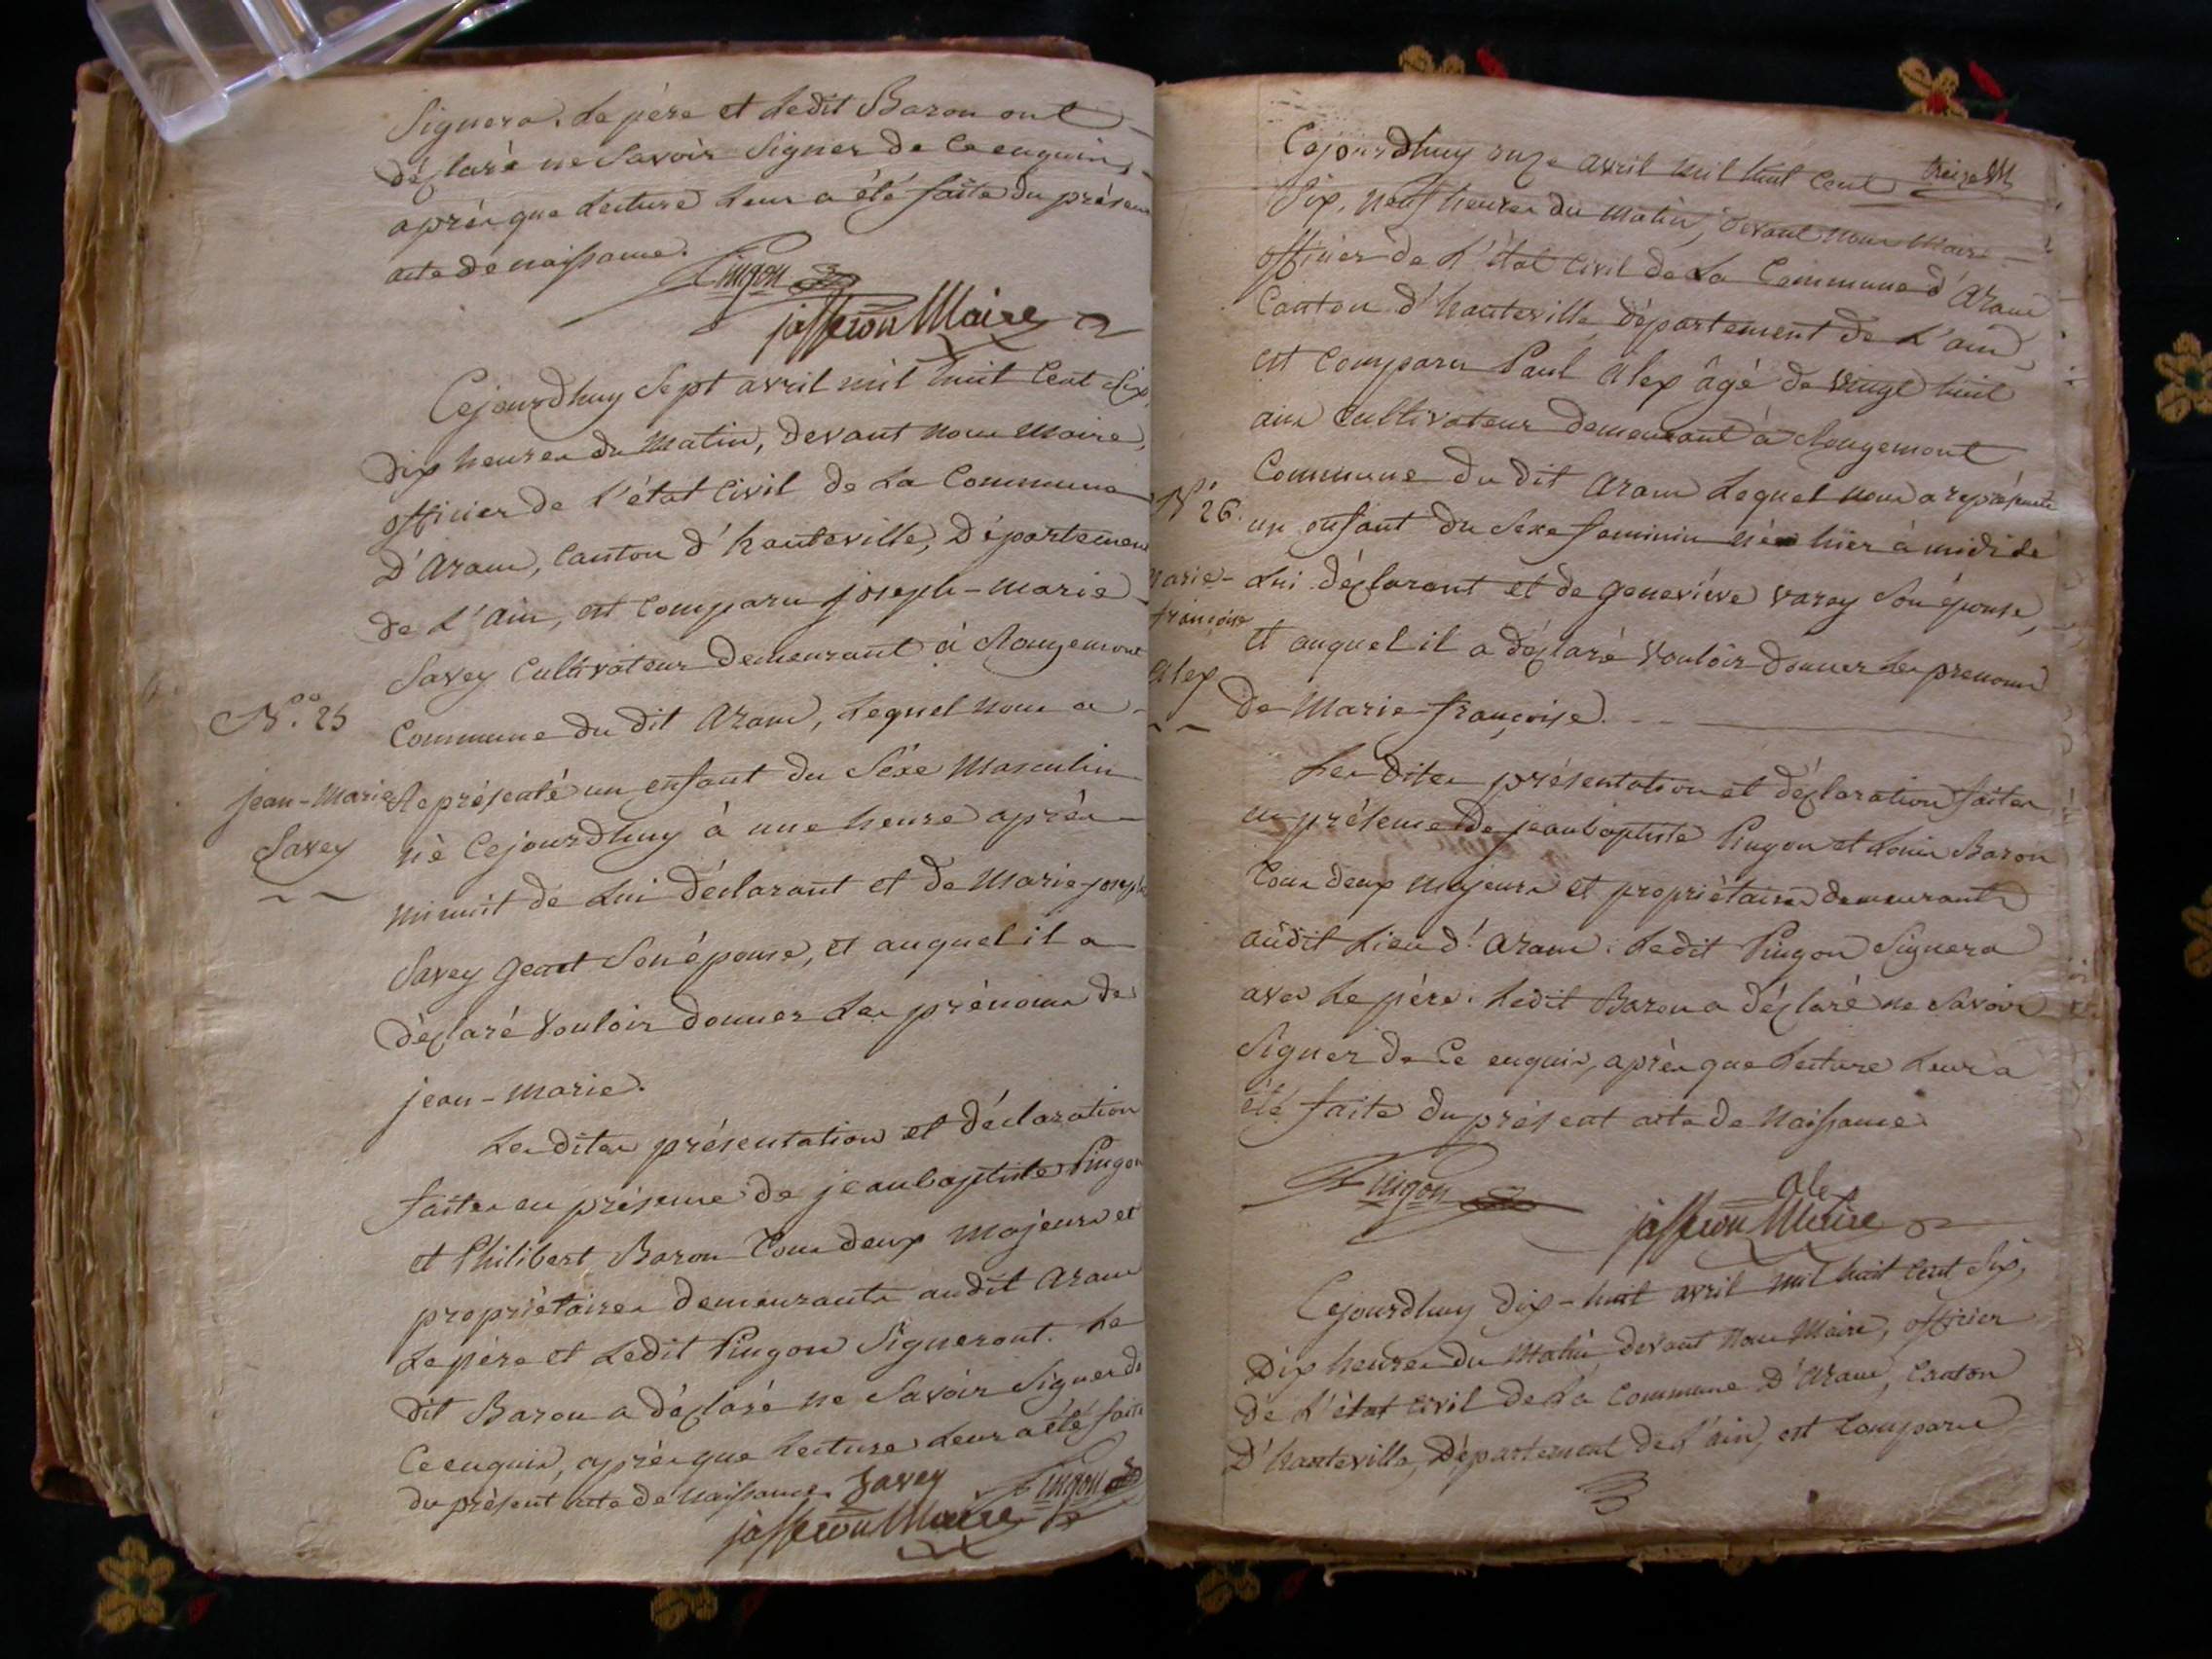 Signera. Le père et Ledit Baron ont
déclaré ne Savoir Signer de ce enquis,
après que Lecture Leur a été faite du présent
acte de naissance.
Pingon
jasseron Maire
Cejourdhuy Sept avril mil huit Cent Six,
Dix heures du matin, devant nous Maire,
officier de l'état Civil de La Commune
D'Aranc, Canton d'hauteville, Département
de L'Ain, est Comparu joseph-marie
Savey Cultivateur demeurant à Rougemont
N.° 25
Commune du dit Aranc, Lequel nous a
jean-marie
Représenté un enfant du Séxe Masculin
Savey
né Cejourdhuy à une heure après
minuit de Lui déclarant et de Marie-joseph
Savey Son épouse, et auquel il a
déclaré Vouloir donner Les prénoms de
jean-marie.
Les dites présentation et déclaration
faites en présence de jeanbaptiste Pingon
et Philibert Baron Tous deux majeurs et
propriétaires demeurants audit Aranc
Le père et Ledit Pingon Signeront. Le
dit Baron a déclaré ne Savoir Signer de
Ce enquis, après que Lecture Leur a été faite
du présent acte de naissance. Savey Pingon
jasseron Maire
treize
Cejourdhuy onze avril mil huit Cent
Six, neuf heures du matin, devant nous Maire
officier de L'état Civil de La Commune d'Aranc
Canton d'hauteville département de L'ain,
est Comparu Paul Alex âgé de vingt huit
ans Cultivateur demeurant à Rougemont
Commune du dit Aranc Lequel nous a représenté
N.° 26.
un enfant du Sexe feminin née hier à midi de
Marie-
Lui déclarant et de geneviève varey Son épouse,
françoise
et auquel il a déclaré Vouloir donner Les prenoms
Alex
de Marie-françoise.
Les dites présentation et déclaration faites
en présence de jeanbaptiste Pingon et Louis Baron
Tous deux majeurs et propriétaires demeurants
audit Lieu d'Aranc. Ledit Pingon Signera
avec Le père. Ledit Baron a déclaré ne Savoir
Signer de Ce enquis, après que Lecture Leur a
été faite du présent acte de Naissance.
Pingon
alex
jasseron Maire
Cejourdhuy dix-huit avril mil huit Cent Six,
Dix heures du Matin devant Nous Maire, officier
de L'état civil de La Commune D'Aranc, Canton
D'hauteville, Département de L'ain, est Comparu